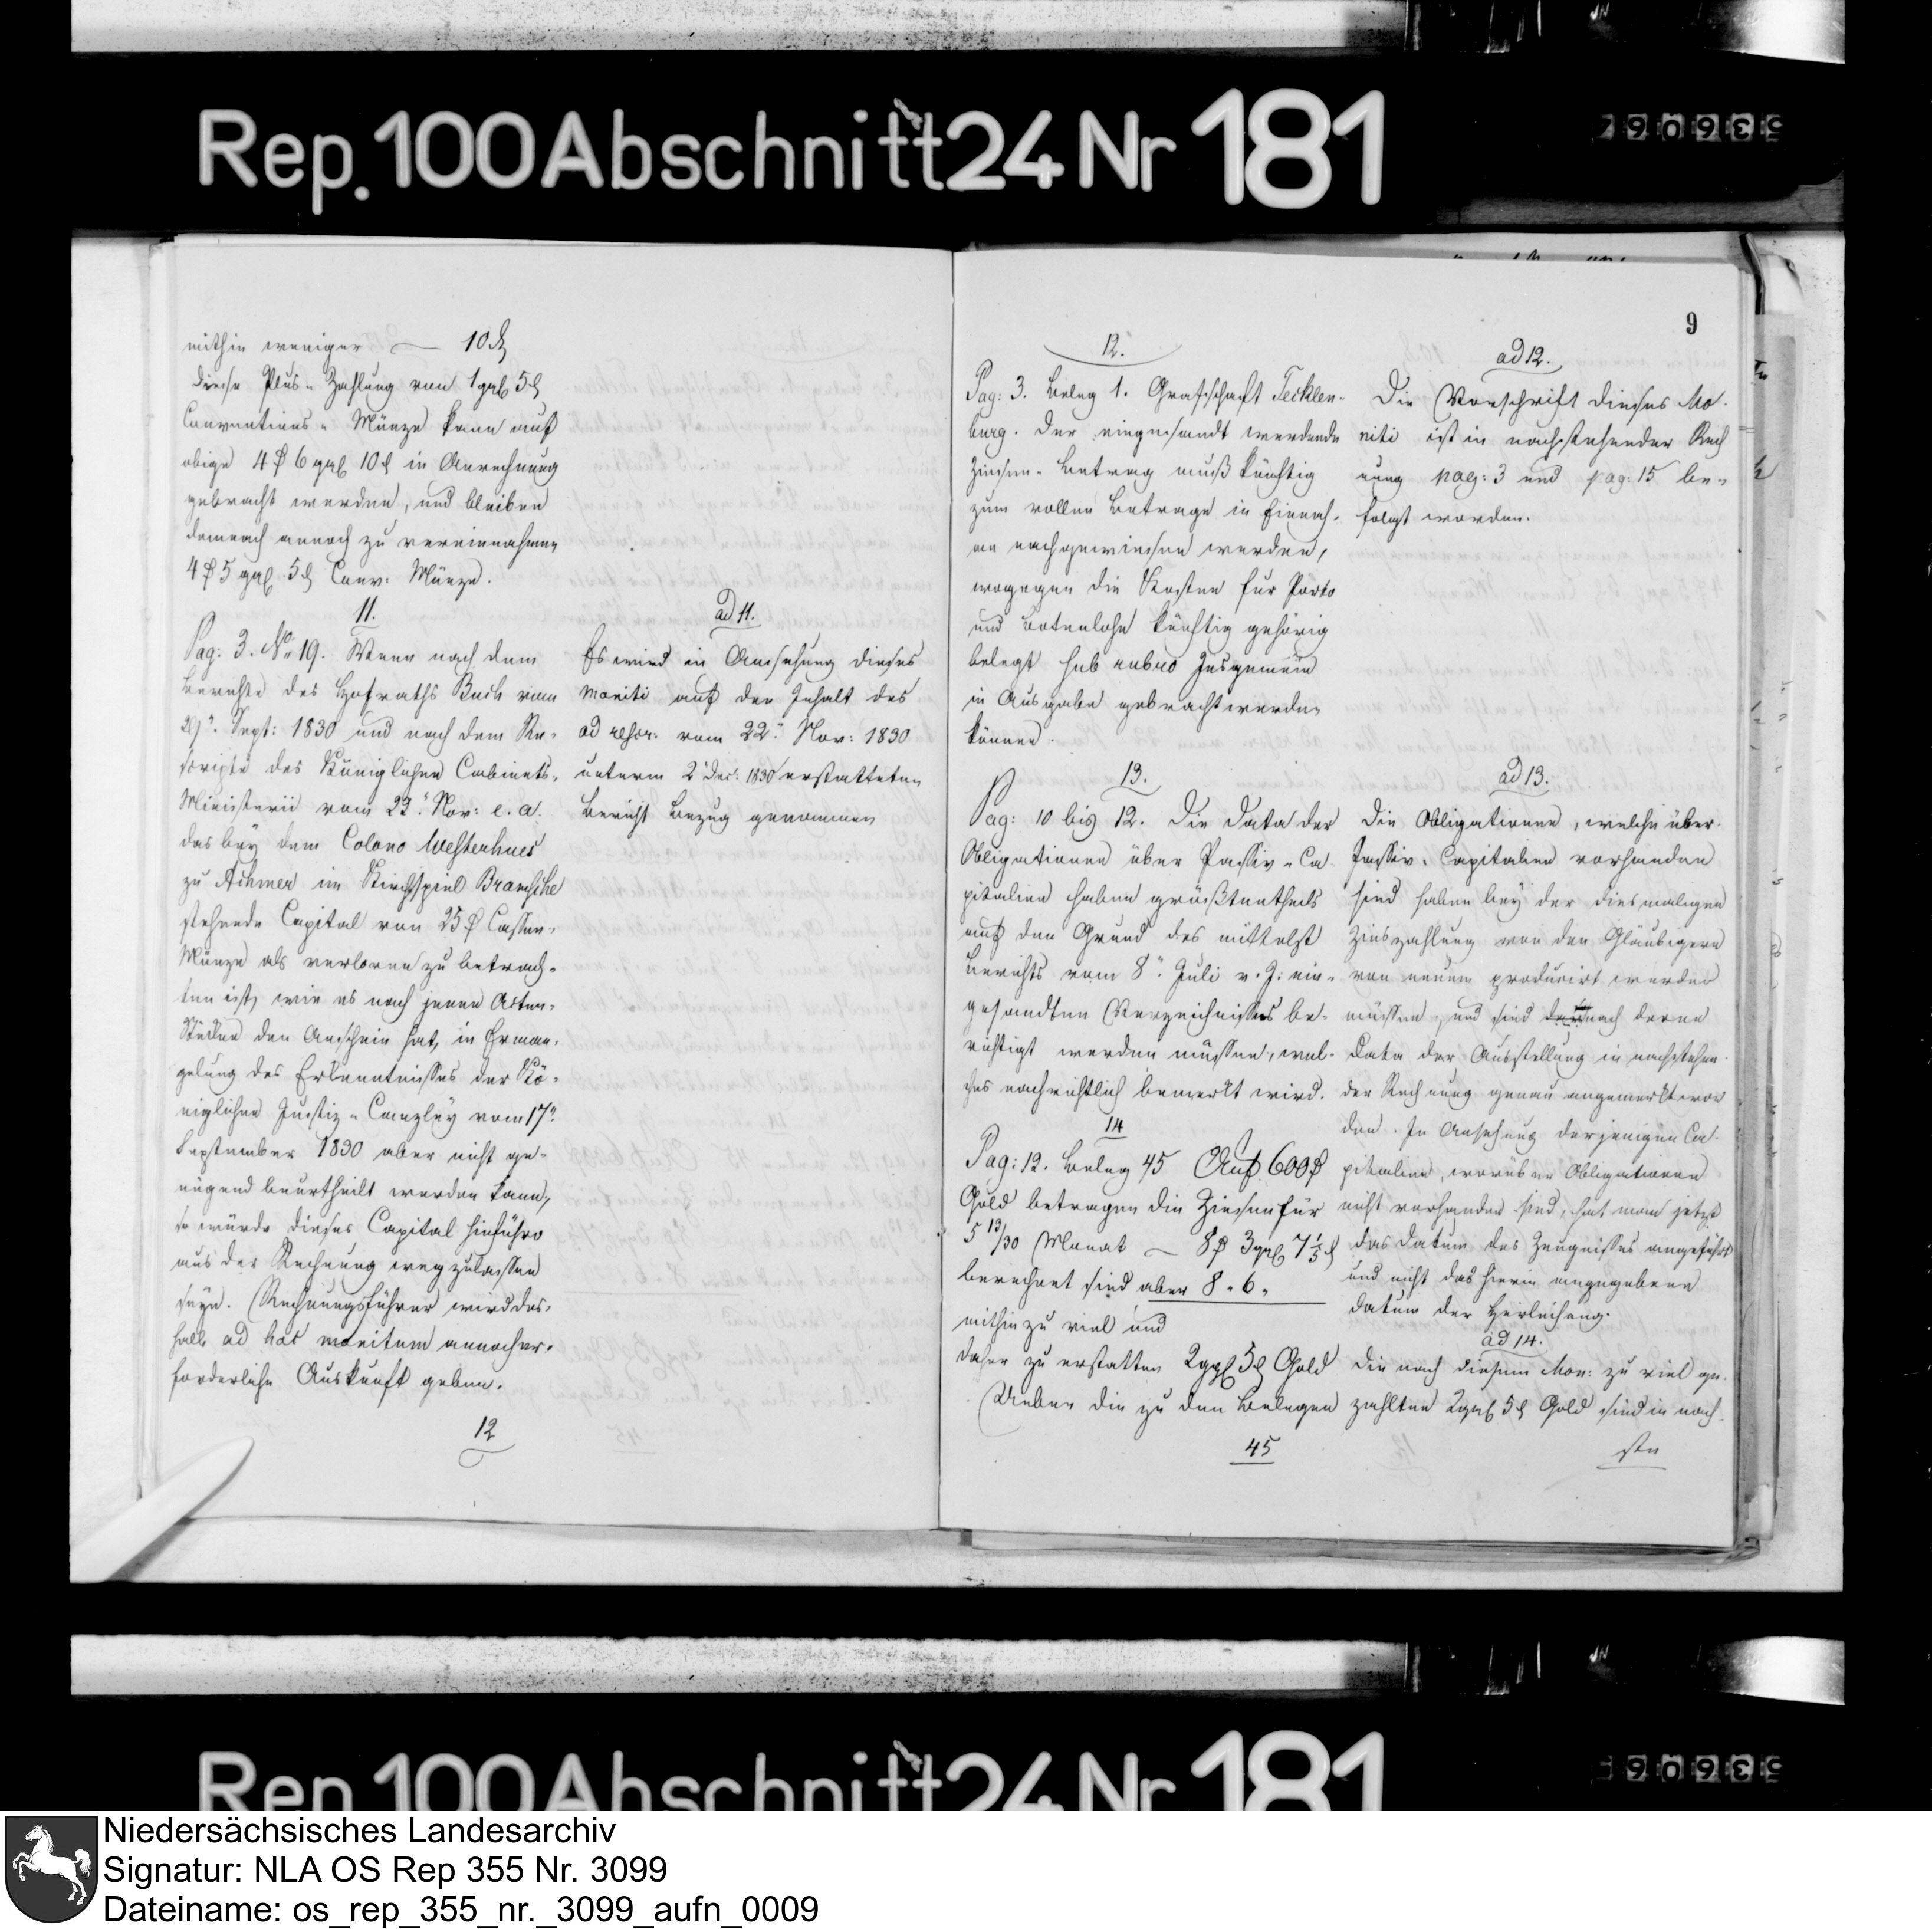 Rep. 100 Abschnitt 24 Nr 181
mithin weniger — 10 ₰
diese Plus-Zahlung von 1 ggl 5 ₰
Conventions-Münze kann auf
obige 4 ₰ 6 ggl 10 ₰ in Anrechnung
gebracht werden, und bleiben
demnach annoch zu vereinnahmen
4 ₰ 5 ggl 5 ₰ Conv: Münze.
11.
Pag: 3. No 19. Wenn nach dem
Berichte des Hofraths Buch vom
Sept: 1830 und nach dem Re-
scripte des Königlichen Cabinets-
Ministerii vom 22. Nov: e. a.
das bey dem Colono Westerhues
zu Achmer im Kirchspiel Bramsche
stehende Capital von 25 ₰ Cassen-
Münze als verloren zu betrach-
ten ist, wie es nach jenen Acten-
Stücken den Anschein hat, in Erman-
gelung des Erkenntnisses der Kö-
niglichen Justiz-Canzley vom 17.
September 1830 aber nicht ge-
nügend beurtheilt werden kann,
so würde dieses Capital hinführo
aus der Rechnung wegzulassen
seyn. Rechnungsführer wird des-
halb ad hoc monitum annoch er-
forderliche Auskunft geben.
12
ad 11.
Es wird in Ansehung dieses
Moniti auf den Inhalt des
ad rescr: vom 22. Nov: 1830
unterm 2. Dec: 1830 erstatteten
Bericht Bezug genommen
9
12.
Pag: 3. Beleg 1. Grafschaft Tecklen-
burg. Der eingesandt werdende
Zinsen-Betrag muß künftig
zum vollen Betrage in Einnah-
me nachgewiesen werden,
wogegen die Kosten für Porto
und Botenlohn künftig gehörig
belegt sub rubro Insgemein
in Ausgabe gebracht werden
können.
13.
Pag: 10 bis 12. Die Data der
Obligationen über Passiv-Ca
pitalien haben größtentheils
auf den Grund des mittelst
Berichts vom 8. Juli v. J. ein-
gesandten Verzeichnisses be-
richtigt werden müssen, wel-
ches nachrichtlich bemerkt wird.
14
Pag: 12. Beleg 45 Auf 600 ₰
Gold betragen die Zinsen für
5 13/30 Monat — 8 ₰ 3 ggl 7 1/5 ₰
berechnet sind aber 8 " 6 "
mithin zu viel und
daher zu erstatten 2 ggl 5 ₰ Gold
Ueber die zu den Belegen
45
ad 12.
Die Vorschrift dieses Mo-
niti ist in nachstehender Rech
nung pag: 3 und pag: 15 be-
folgt worden.
ad 13.
Die Obligationen, welche über
Passiv-Capitalien vorhanden
sind haben bey der diesmaligen
Zinszahlung von den Gläubigern
von neuem producirt werden
müssen, und sind nach denen
Data der Ausstellung in nachstehen-
der Rechnung genau angemerkt wor
den. In Ansehung derjenigen Ca-
pitalien, worüber Obligationen
nicht vorhanden sind, hat man jetzt
das Datum des Zeugnisses angeführt
und nicht das hierin angegebene
Datum der Verleihung.
ad 14.
Die nach diesem Mon: zu viel ge-
zahlten 2 ggl 5 ₰ Gold sind in nach
ste
Rep. 100 Abschnitt 24 Nr 181
Niedersächsisches Landesarchiv
Signatur: NLA OS Rep 355 Nr. 3099
Dateiname: os_rep_355_nr._3099_aufn_0009